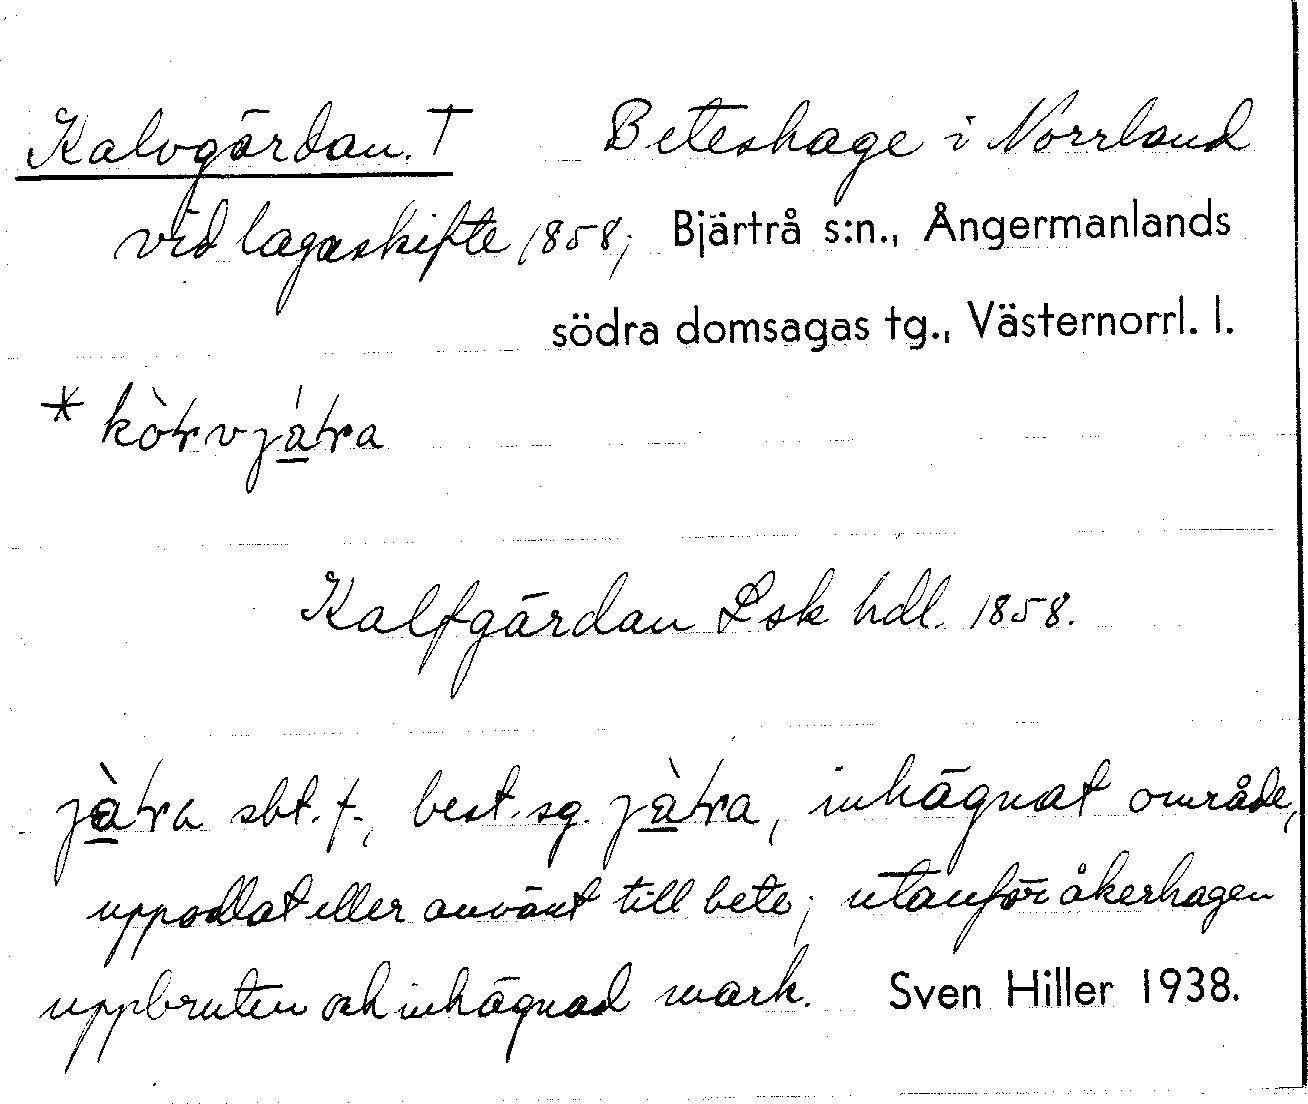 Kalvgärdan. † Beteshage i Norrland
vid lagaskifte 1858; Bjärtrå s:n., Ångermanlands
södra domsagas tg., Västernorrl. l.
Kalfgärdan Lsk hdl. 1858.
sbt. f., best. sg. inhägnat område,
uppodlat eller använt till bete; utanför åkerhagen
uppbruten och inhägnad mark. Sven Hiller 1938.